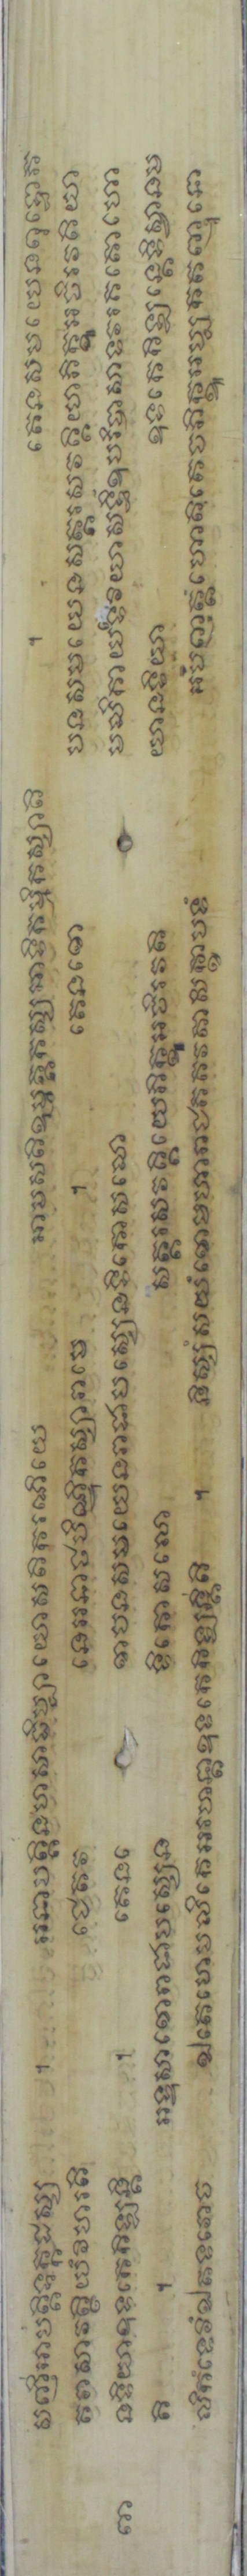 សញ្ញីអាបត្តិទុក្កដស្ស ។ អនាបត្តិនហសាធិប្បាយោសតិករណិយេ អាបសតិឧម្មត្តកស្សអាទិកម្មិកស្សាតិ ។ តេនសមយេនពុទ្ធោភ
គវាសាវត្ថិយំវិហរតិ ជេតវ នេអនាថបិណ្ឌិកស្សារាមេ ។ តេនខោ បនសមយេនសត្តរសវគ្គិយាភិក្ខូអចិរវតិយា
នទិយាឧទកេកិឡន្តិ ។ តេនខេ ាបនសមយេនរាជាបស្សេនទិកោសលោ មលិកាយទេវិយាសទ្ធិំឧបរិបាសាទវរគតោហោ
តិ ។ អទ្ទសាខោរាជាបស្សេន ទិកោសលោ សត្តរសវគ្គិយេភិក្ខូអចិរវតិ យានទិយា ឧទកេកិឡន្តេទិស្វានម
លិកំទេវិំឯតទវោច ឯតេតេមលិកេអរហន្តាឧទកេកិឡន្តីតិ ។ និស្សំសយំខោមហារាជភគវតាសិក្ខាបទំ អបញ្ញត្តំហោតិតេចភិក្ខូអប្បកតញ្ញុនោ